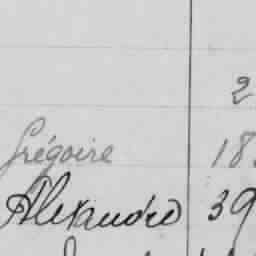 2
Grégoire 18
Alexandre 39